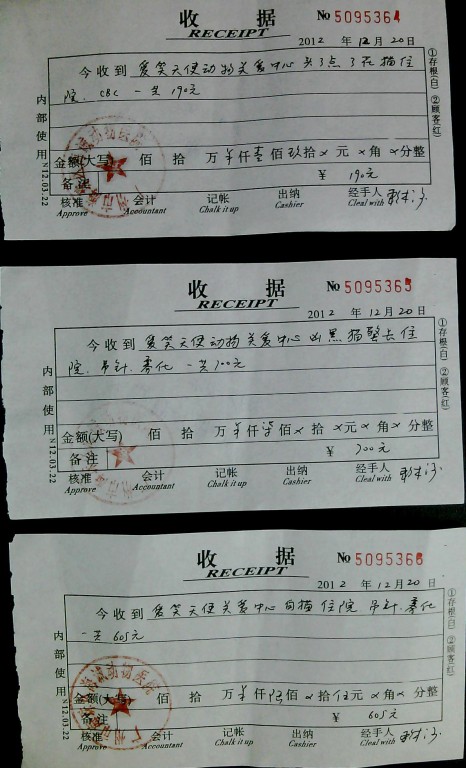 收 据 No 5095364
RECEIPT
2012 年 12 月 20 日
今收到 爱笑天使动物关爱中心 头 了点 了花 猫住
院. CBC 一共 190元
金额(大写) 佰 拾 万 仟 壹 佰 玖 拾 × 元 × 角 × 分整
备注 ¥ 190元
核准 会计 记帐 出纳 经手人
Approve Accountant Chalk it up Cashier Cleal with
内部使用 N12.03.22
①存根(白) ②顾客(红)
收 据 No 5095365
RECEIPT
2012 年 12 月 20 日
今收到 爱笑天使动物关爱中心 黑猫 警长 住
院. 吊针. 雾化 一共 700元
金额(大写) 佰 拾 万 仟 柒 佰 × 拾 × 元 × 角 × 分整
备注 ¥ 700元
核准 会计 记帐 出纳 经手人
Approve Accountant Chalk it up Cashier Cleal with
内部使用 N12.03.22
①存根(白) ②顾客(红)
收 据 No 5095366
RECEIPT
2012 年 12 月 20 日
今收到 爱笑天使关爱中心 猫 住院 吊针. 雾化
一共 605元
金额(大写) 佰 拾 万 仟 陆 佰 × 拾 伍 元 × 角 × 分整
备注 ¥ 605元
核准 会计 记帐 出纳 经手人
Approve Accountant Chalk it up Cashier Cleal with
内部使用 N12.03.22
①存根(白) ②顾客(红)